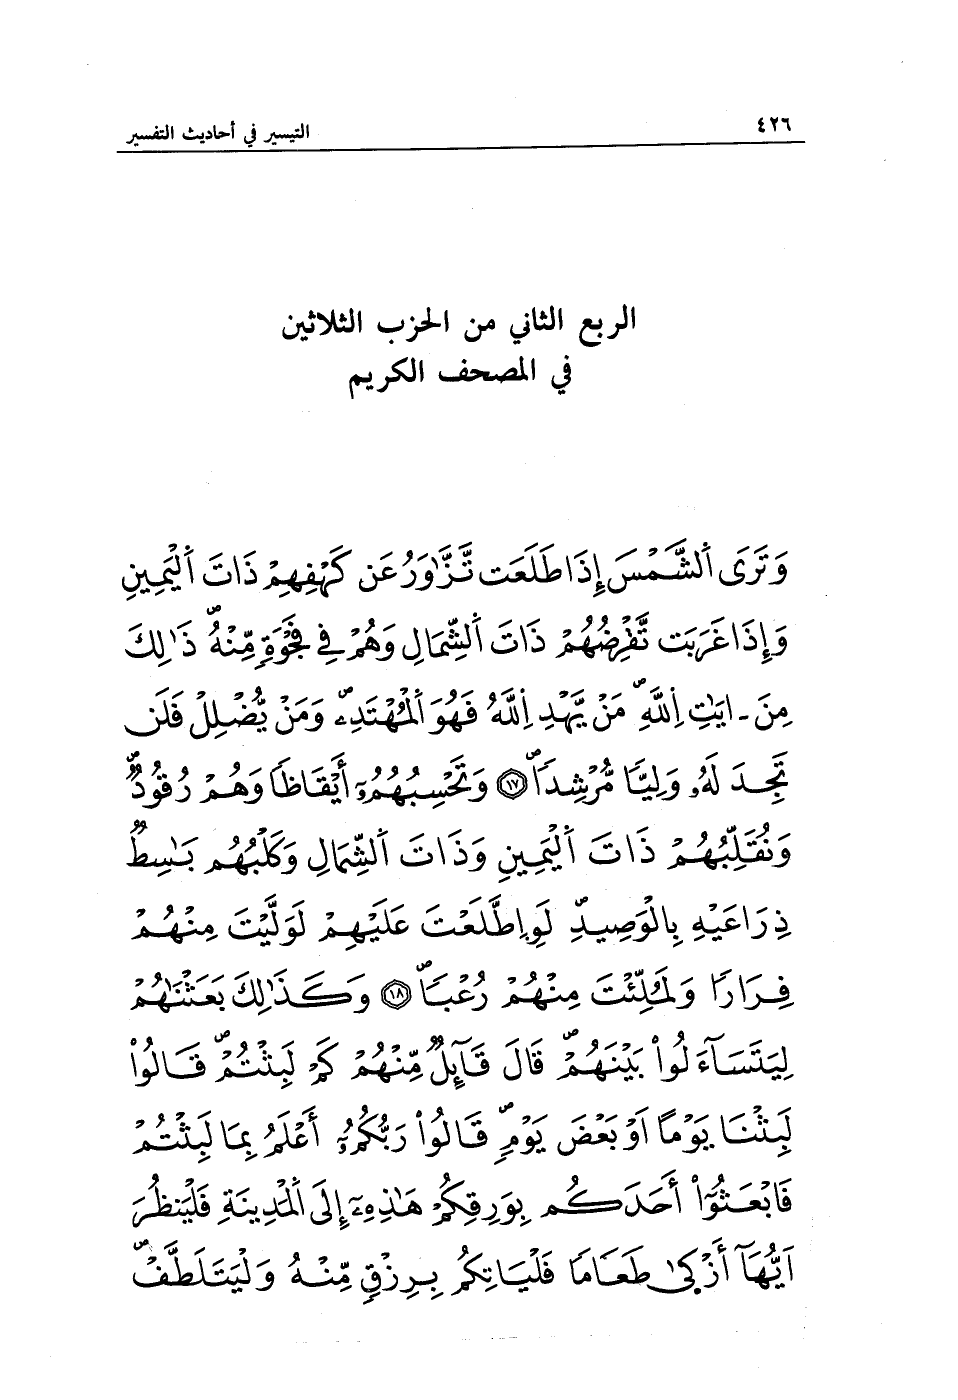 ٤٢٦
التيسير في أحاديث التفسير
الربع الثاني من الحزب الثلاثين
في المصحف الكريم
وَتَرَى اَ۬لشَّمْسَ إِذَا طَلَعَت تَّزَّٰوَرُ عَن كَهْفِهِمْ ذَاتَ اَ۬لْيَمِينِ
وَإِذَا غَرَبَت تَّقْرِضُهُمْ ذَاتَ اَ۬لشِّمَالِ وَهُمْ فِي فَجْوَةٍ مِّنْهُۖ ذَٰلِكَ
مِنَ ـ ايَٰتِ اِ۬للَّهِۖ مَنْ يَّهْدِ اِ۬للَّهُ فَهُوَ اَ۬لْمُهْتَدِۦۖ وَمَنْ يُّضْلِلْ فَلَن
تَجِدَ لَهُۥ وَلِيّٗا مُّرْشِداٗۖ ١٧ وَتَحْسِبُهُمُۥٓ أَيْقَاظاٗ وَهُمْ رُقُودٞۖ
وَنُقَلِّبُهُمْ ذَاتَ اَ۬لْيَمِينِ وَذَاتَ اَ۬لشِّمَالِ وَكَلْبُهُم بَٰسِطٞ
ذِرَاعَيْهِ بِالْوَصِيدِۖ لَوِ اِ۪طَّلَعْتَ عَلَيْهِمْ لَوَلَّيْتَ مِنْهُمْ
فِرَاراٗ وَلَمُلِّئْتَ مِنْهُمْ رُعْباٗۖ ١٨ وَكَذَٰلِكَ بَعَثْنَٰهُمْ
لِيَتَسَآءَلُواْ بَيْنَهُمْۖ قَالَ قَآئِلٞ مِّنْهُمْ كَمْ لَبِثْتُمْۖ قَالُواْ
لَبِثْنَا يَوْماً اَوْ بَعْضَ يَوْمٖۖ قَالُواْ رَبُّكُمُۥٓ أَعْلَمُ بِمَا لَبِثْتُمْ
فَابْعَثُوٓاْ أَحَدَكُم بِوَرِقِكُمْ هَٰذِهِۦٓ إِلَى اَ۬لْمَدِينَةِ فَلْيَنظُرَ
اَيُّهَآ أَزْكَىٰ طَعَاماٗ فَلْيَاتِكُم بِرِزْقٖ مِّنْهُ وَلْيَتَلَطَّفْۖ